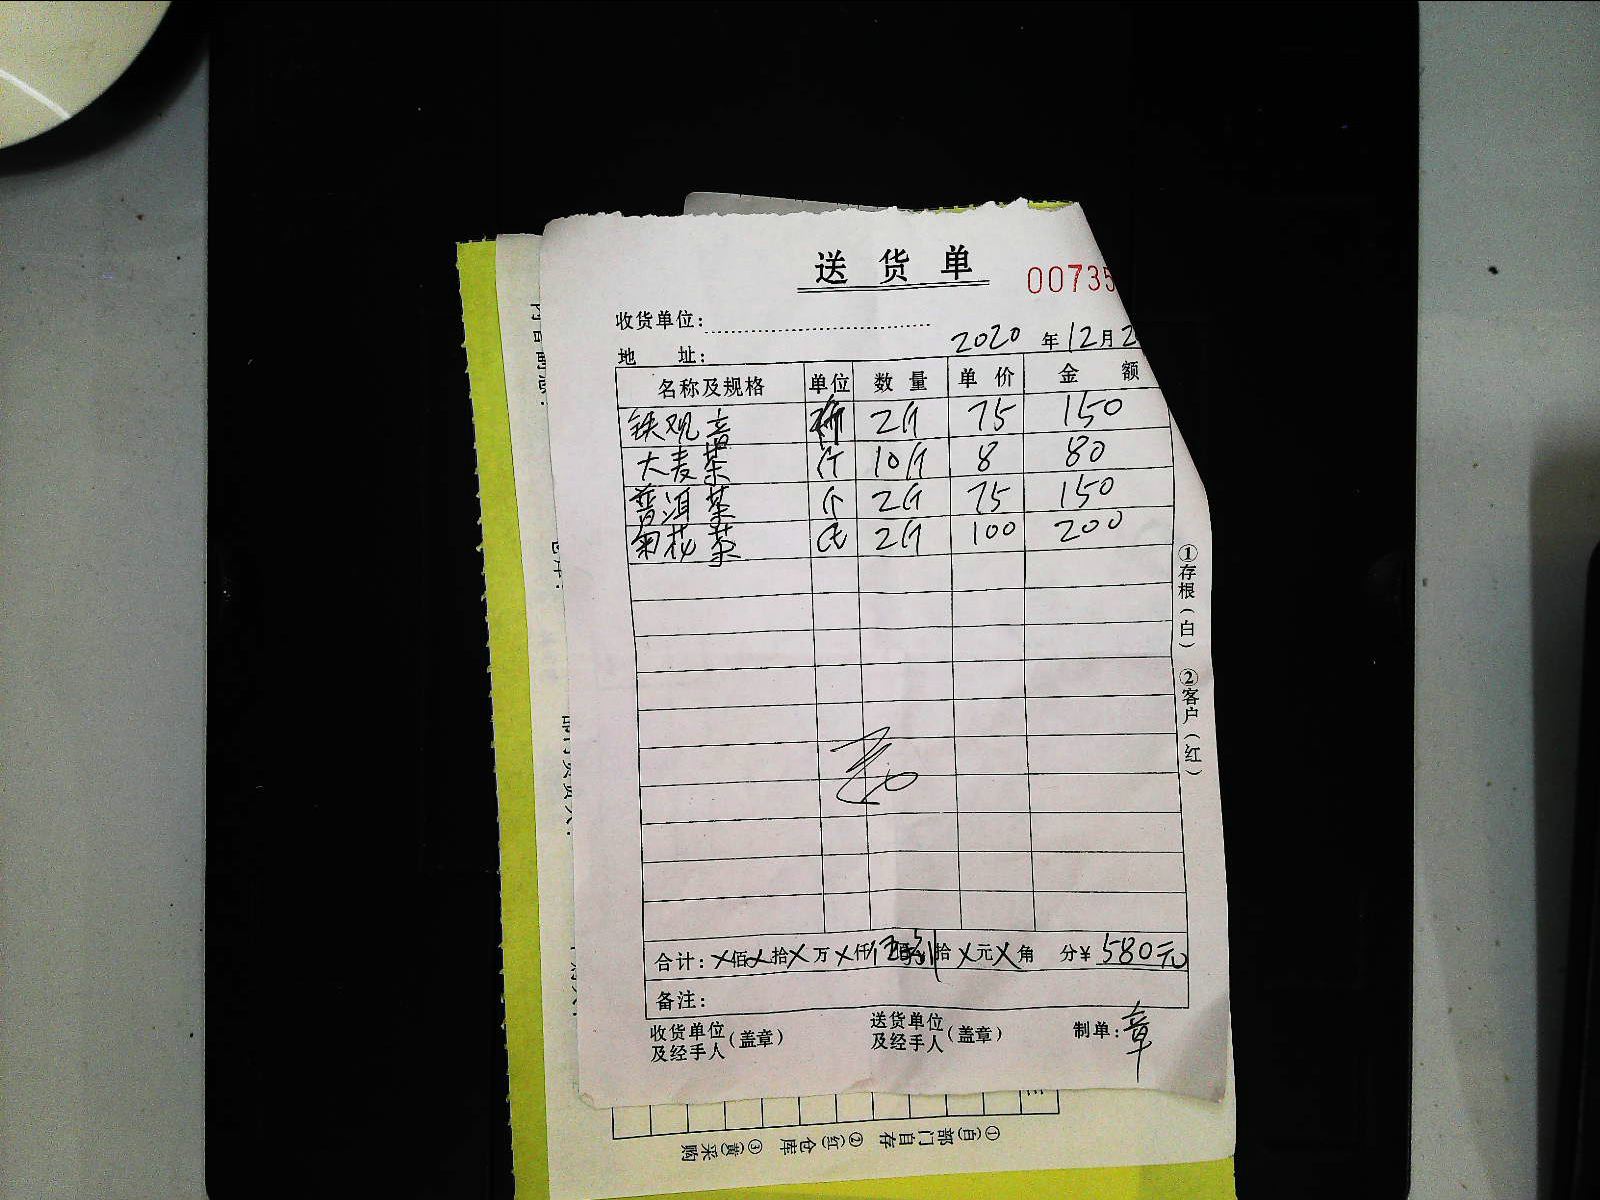 送货单
00735
收货单位：
2020年12月2
地 址：
名称及规格 单位 数量 单价 金额
铁观音 2斤 75 150
大麦茶 斤 10斤 8 80
普洱茶 斤 2斤 75 150
菊花茶 2斤 100 200
①存根（白） ②客户（红）
合计：X佰X拾X万X仟伍佰捌拾X元X角 分¥580元
备注：
收货单位及经手人（盖章） 送货单位及经手人（盖章） 制单：章
①(白)部门自存 ②(红)仓库 ③(黄)采购